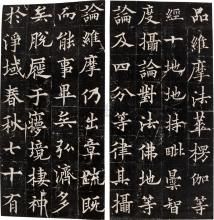 品維摩法華楞伽等
經十地地持毗曇智
度攝論對法佛地等
論及四分等律其攝
論維摩仍出章疏既
而能事畢矣弘濟多
矣脫屣于夢境棲神
於淨域春秋七十有